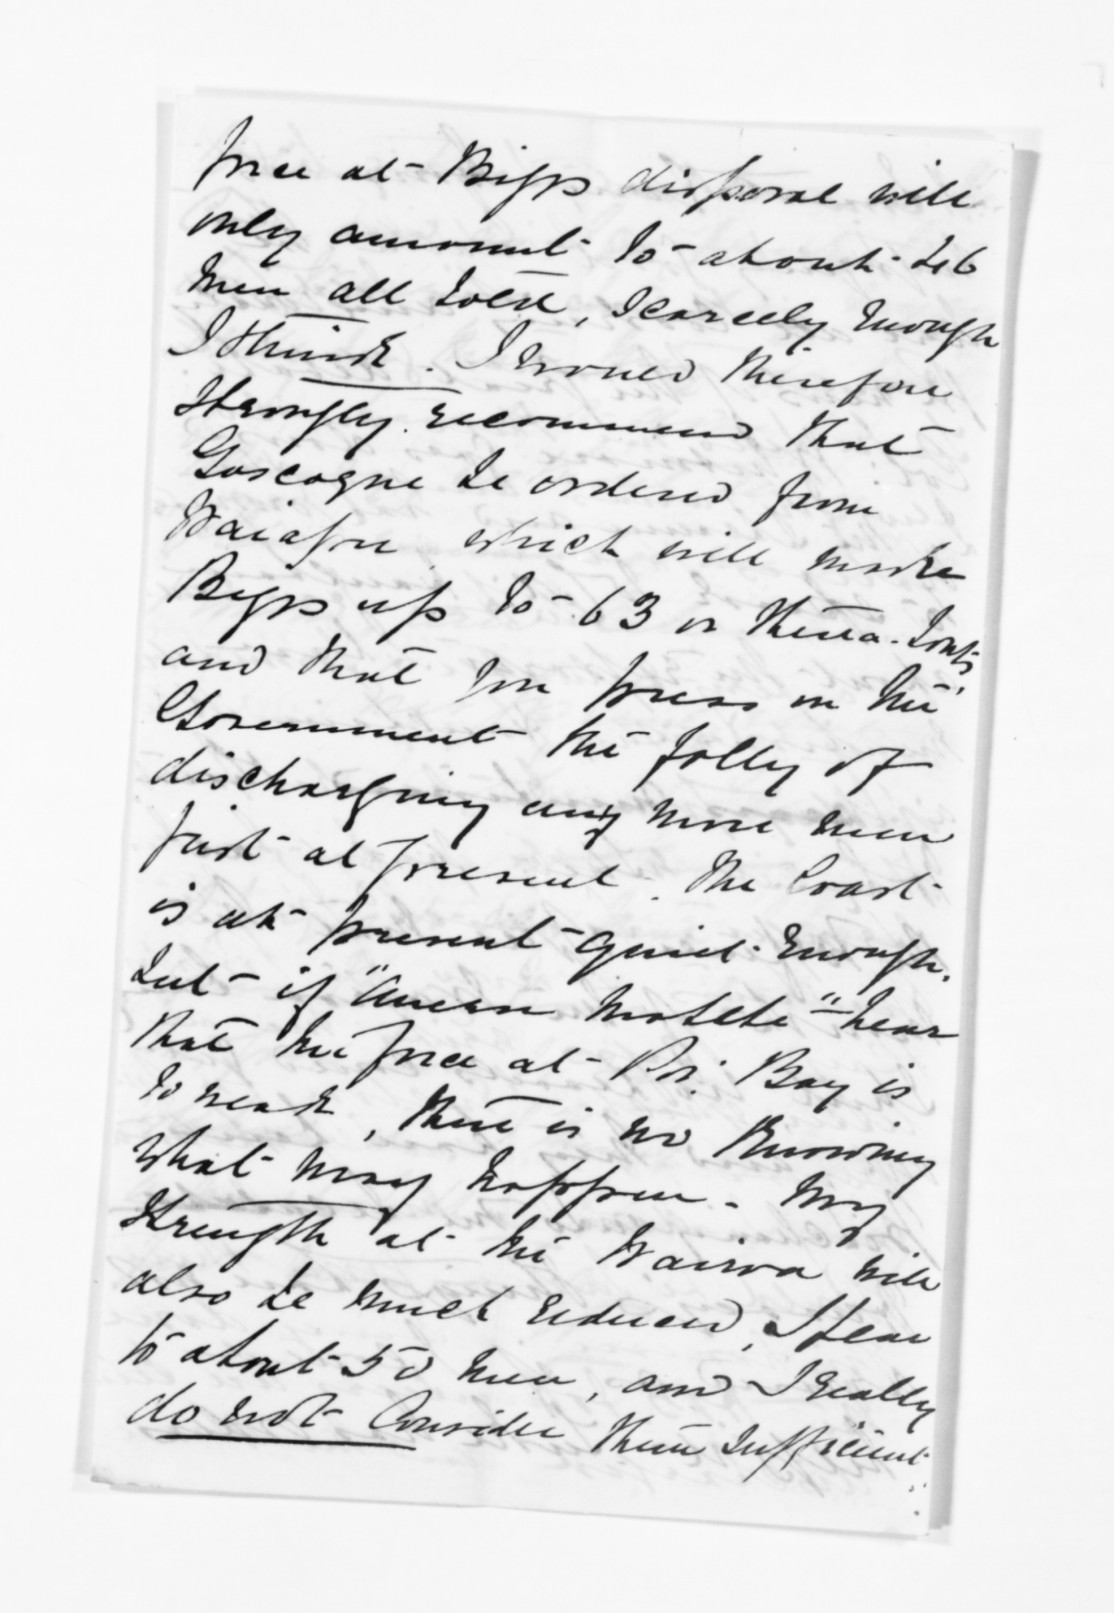 force at Biggs disposal will
only amount to about 46
men all told, scarcely enough
I think. I would therefore
strongly recommend that
Gascogne be ordered from
Waiapu which will make
Biggs up to 63 or
and that you press on the
Government the folly of
discharging any more men
just at present. The Coast
is at present quiet enough,
but if "Anera Matete" hear
that the force at Po: Bay is
so weak, there is no knowing
what may happen. My
strength at the Wairoa will
also be much reduced, I fear
to about 50 men, and I really
do not consider them sufficient